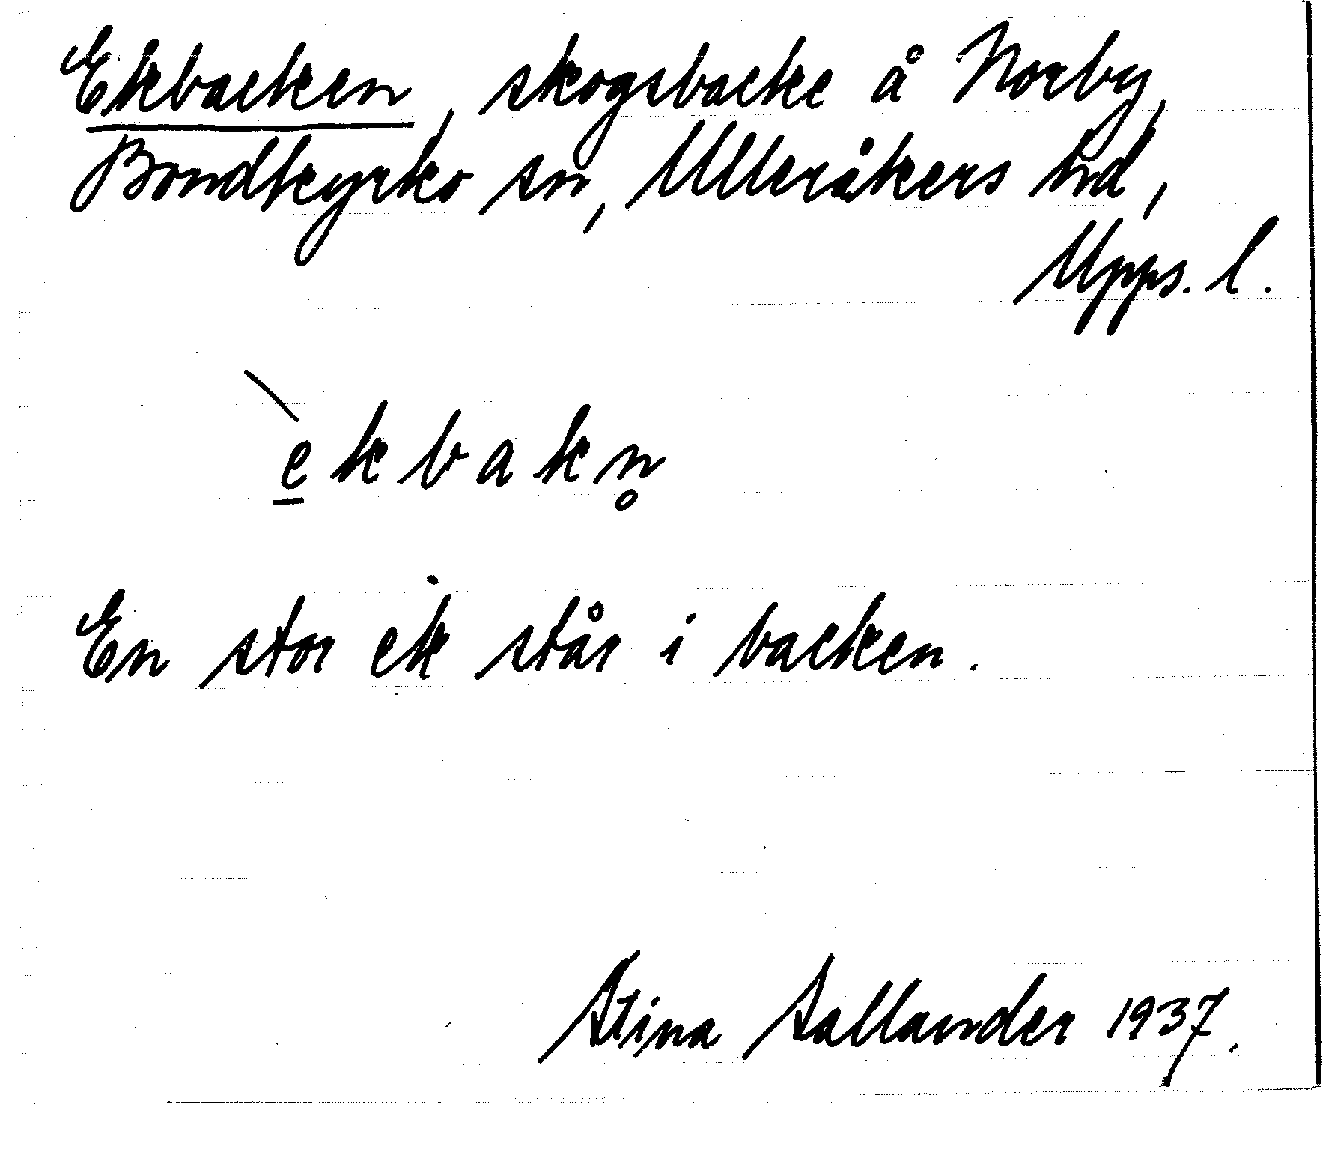 Ekbacken, skogsbacke å Norby,
Bondkyrko sn, Ulleråkers hd,
Upps. l.
`e̲kbakn̥
En stor ek står i backen.
Stina Sallander 1937.